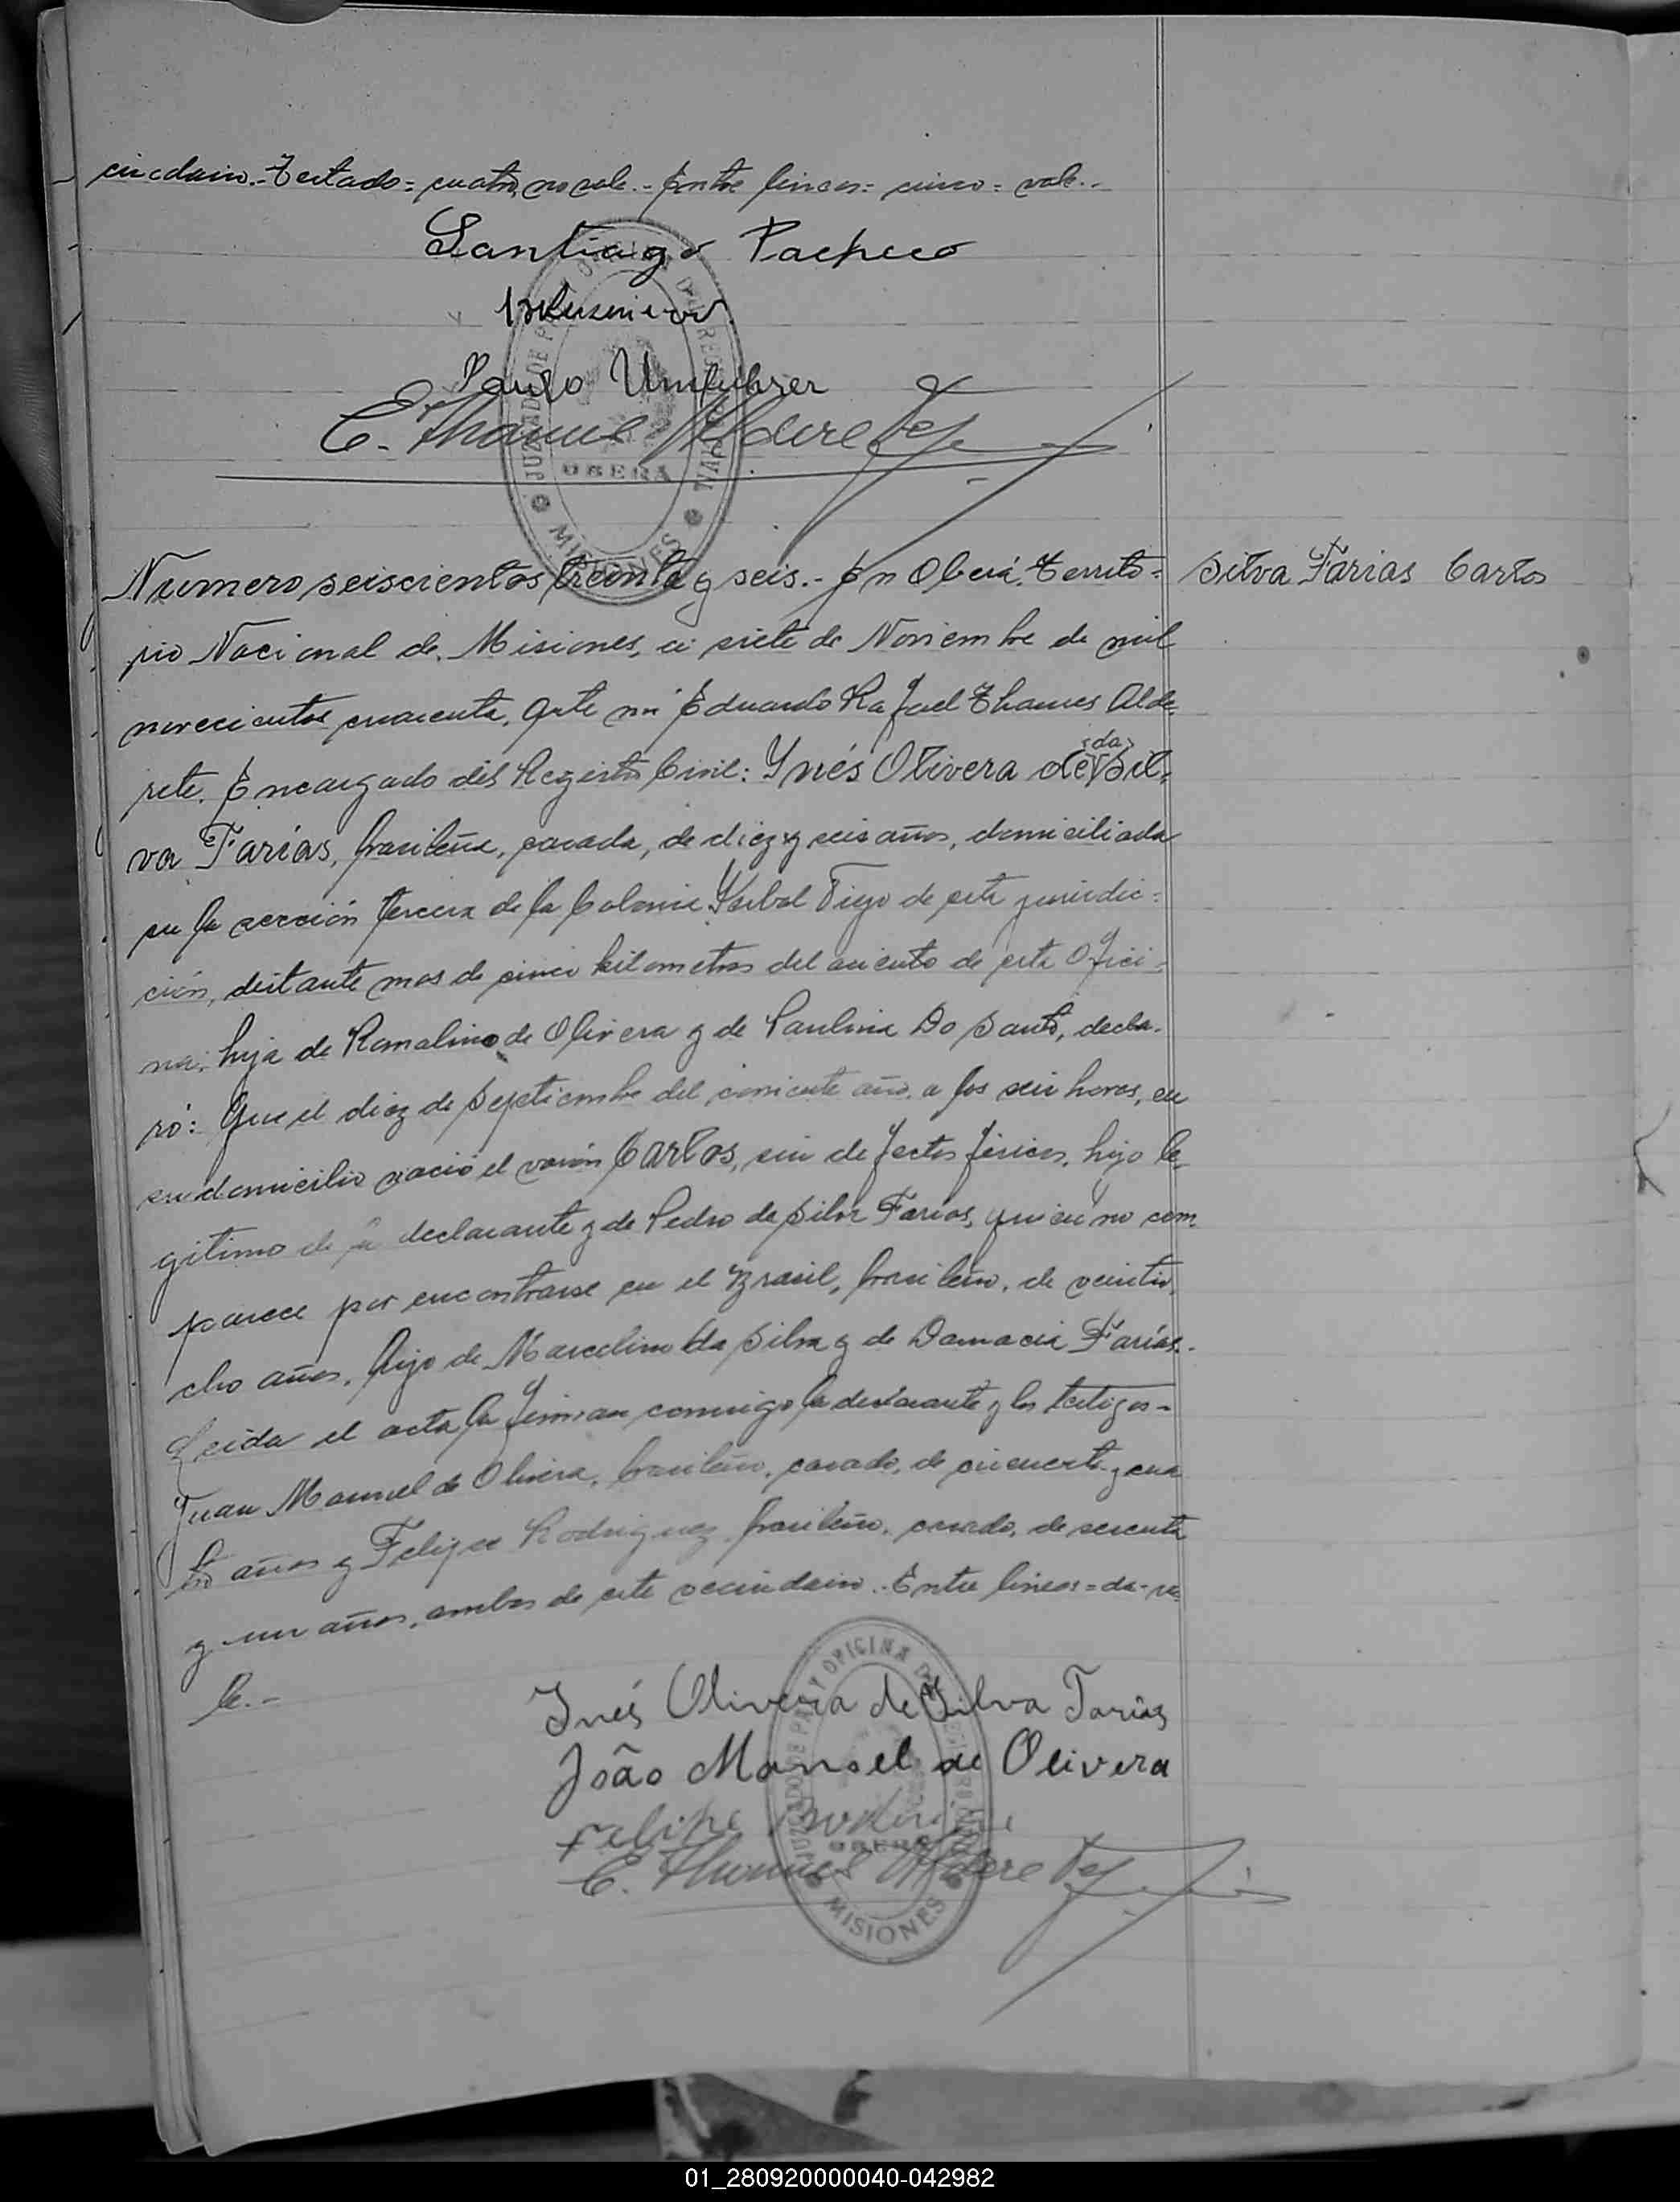 cindario.- Testado = cuatro, no vale.- Entre lineas = cinco = vale.-
Santiago Pacheco
Paulo
E. Thames Alderete
JUZGADO DE PAZ
OBERÁ
MISIONES
Numero seiscientos treinta y seis.- En Oberá, Territo=
Silva Farias Carlos
rio Nacional de Misiones, a siete de Noviembre de mil
novecientos cuarenta, ante mi Eduardo Rafael Thames Alde=
rete, Encargado del Registro Civil: Ynés Olivera de <da> Sil=
va Farías, brasileña, casada, de diez y seis años, domiciliada
en la sección tercera de la Colonia Yerbal Viejo de esta jurisdic=
ción, distante mas de cinco kilometros del asiento de esta Ofici=
na; hija de Romalino de Olivera y de Paulina Do Santo, decla-
ró: Que el diez de Septiembre del corriente año, a las seis horas, en
su domicilio nació el varón Carlos, sin defectos físicos, hijo le=
gitimo de la declarante y de Pedro da Silva Farias, quien no com=
parece por encontrarse en el Brasil, brasileño, de veintio=
cho años, hijo de Marcelino da Silva y de Damacia Farías.-
Leida el acta la firman conmigo la declarante y los testigos-
Juan Manuel de Olivera, brasileño, casado, de cincuenta y cua
tro años y Felipe Rodriguez, brasileño, casado, de sesenta
y un años, ambos de este vecindario.- Entre lineas = da - va=
le.-
Inés Olivera de Silva Farías
João Manoel de Olivera
Felipe
E. Thames Alderete
JUZGADO DE PAZ Y OFICINA
OBERÁ
MISIONES
01_280920000040-042982